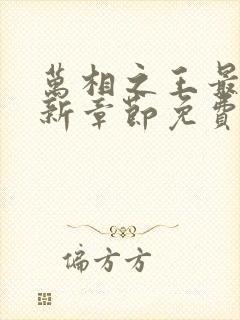 萬相之王最
新章節免費
偏方方